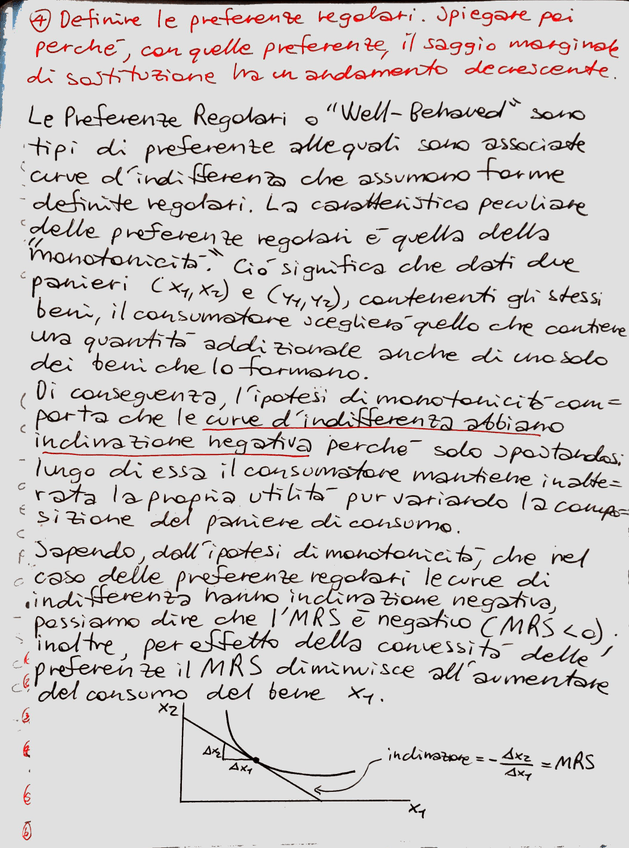 ④ Definire le preferenze regolari. Spiegare poi
perché, con quelle preferenze, il saggio marginale
di sostituzione ha un andamento decrescente.
Le Preferenze Regolari o "Well-Behaved" sono
tipi di preferenze alle quali sono associate
curve d'indifferenza che assumono forme
definite regolari. La caratteristica peculiare
delle preferenze regolari è quella della
"monotonicità". Ciò significa che dati due
panieri (x1,x2) e (y1,y2), contenenti gli stessi
beni, il consumatore sceglierà quello che contiene
una quantità addizionale anche di uno solo
dei beni che lo formano.
Di conseguenza, l'ipotesi di monotonicità com=
porta che le curve d'indifferenza abbiano
inclinazione negativa perché solo spostandosi
lungo di essa il consumatore mantiene inalte=
rata la propria utilità pur variando la compo=
sizione del paniere di consumo.
Sapendo, dall'ipotesi di monotonicità, che nel
caso delle preferenze regolari le curve di
indifferenza hanno inclinazione negativa,
possiamo dire che l'MRS è negativo (MRS<0).
inoltre, per effetto della convessità delle
preferenze il MRS diminuisce all'aumentare
del consumo del bene x1.
x2
Δx2
Δx1
inclinazione = - Δx2/Δx1 = MRS
x1